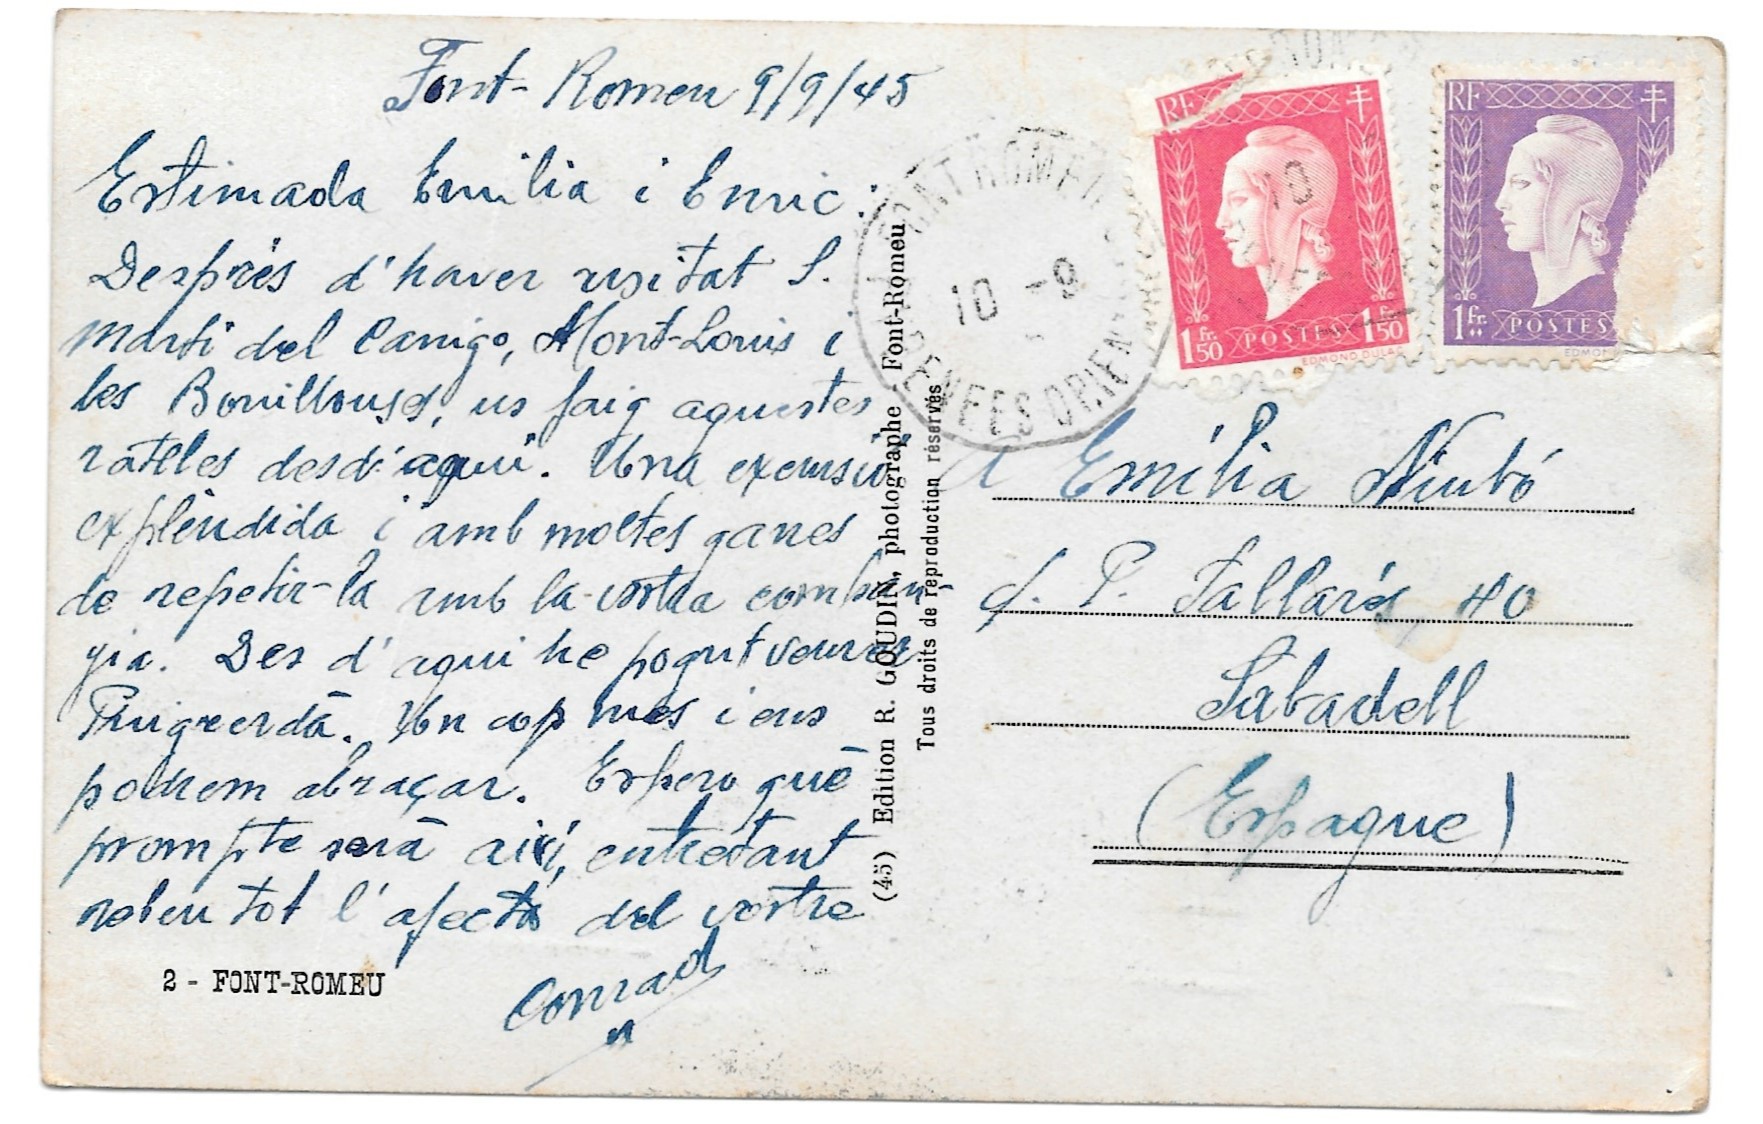 Font-Romeu 9/9/45
Estimada Emilia i Enric:
Després d'haver visitat S.
Marti del Canigo, Mont-Louis i
les Bouillouses, us faig aquestes
ratlles desd'aqui. Una excursió
esplèndida i amb moltes ganes
de repetir-la amb la vostra compan-
yia. Des d'aqui he pogut veurer
Puigcerdà. Un cop mes i ens
podrem abraçar. Espero què
prompte serà aixi, entretant
rebeu tot l'afecte del vostre
Conrad
2 - FONT-ROMEU
(45) Edition R. GOUDIN, photographe Font-Romeu
Tous droits de reproduction réservés
FONT ROMEU
10 -9
PYRENEES ORIENT
RF
1 Fr. 50 POSTES 1 Fr. 50
EDMOND DULAC
RF
1 Fr. POSTES
EDMON
A Emilia Niubó
c/. P. Fallarés 40
Sabadell
(Espagne)